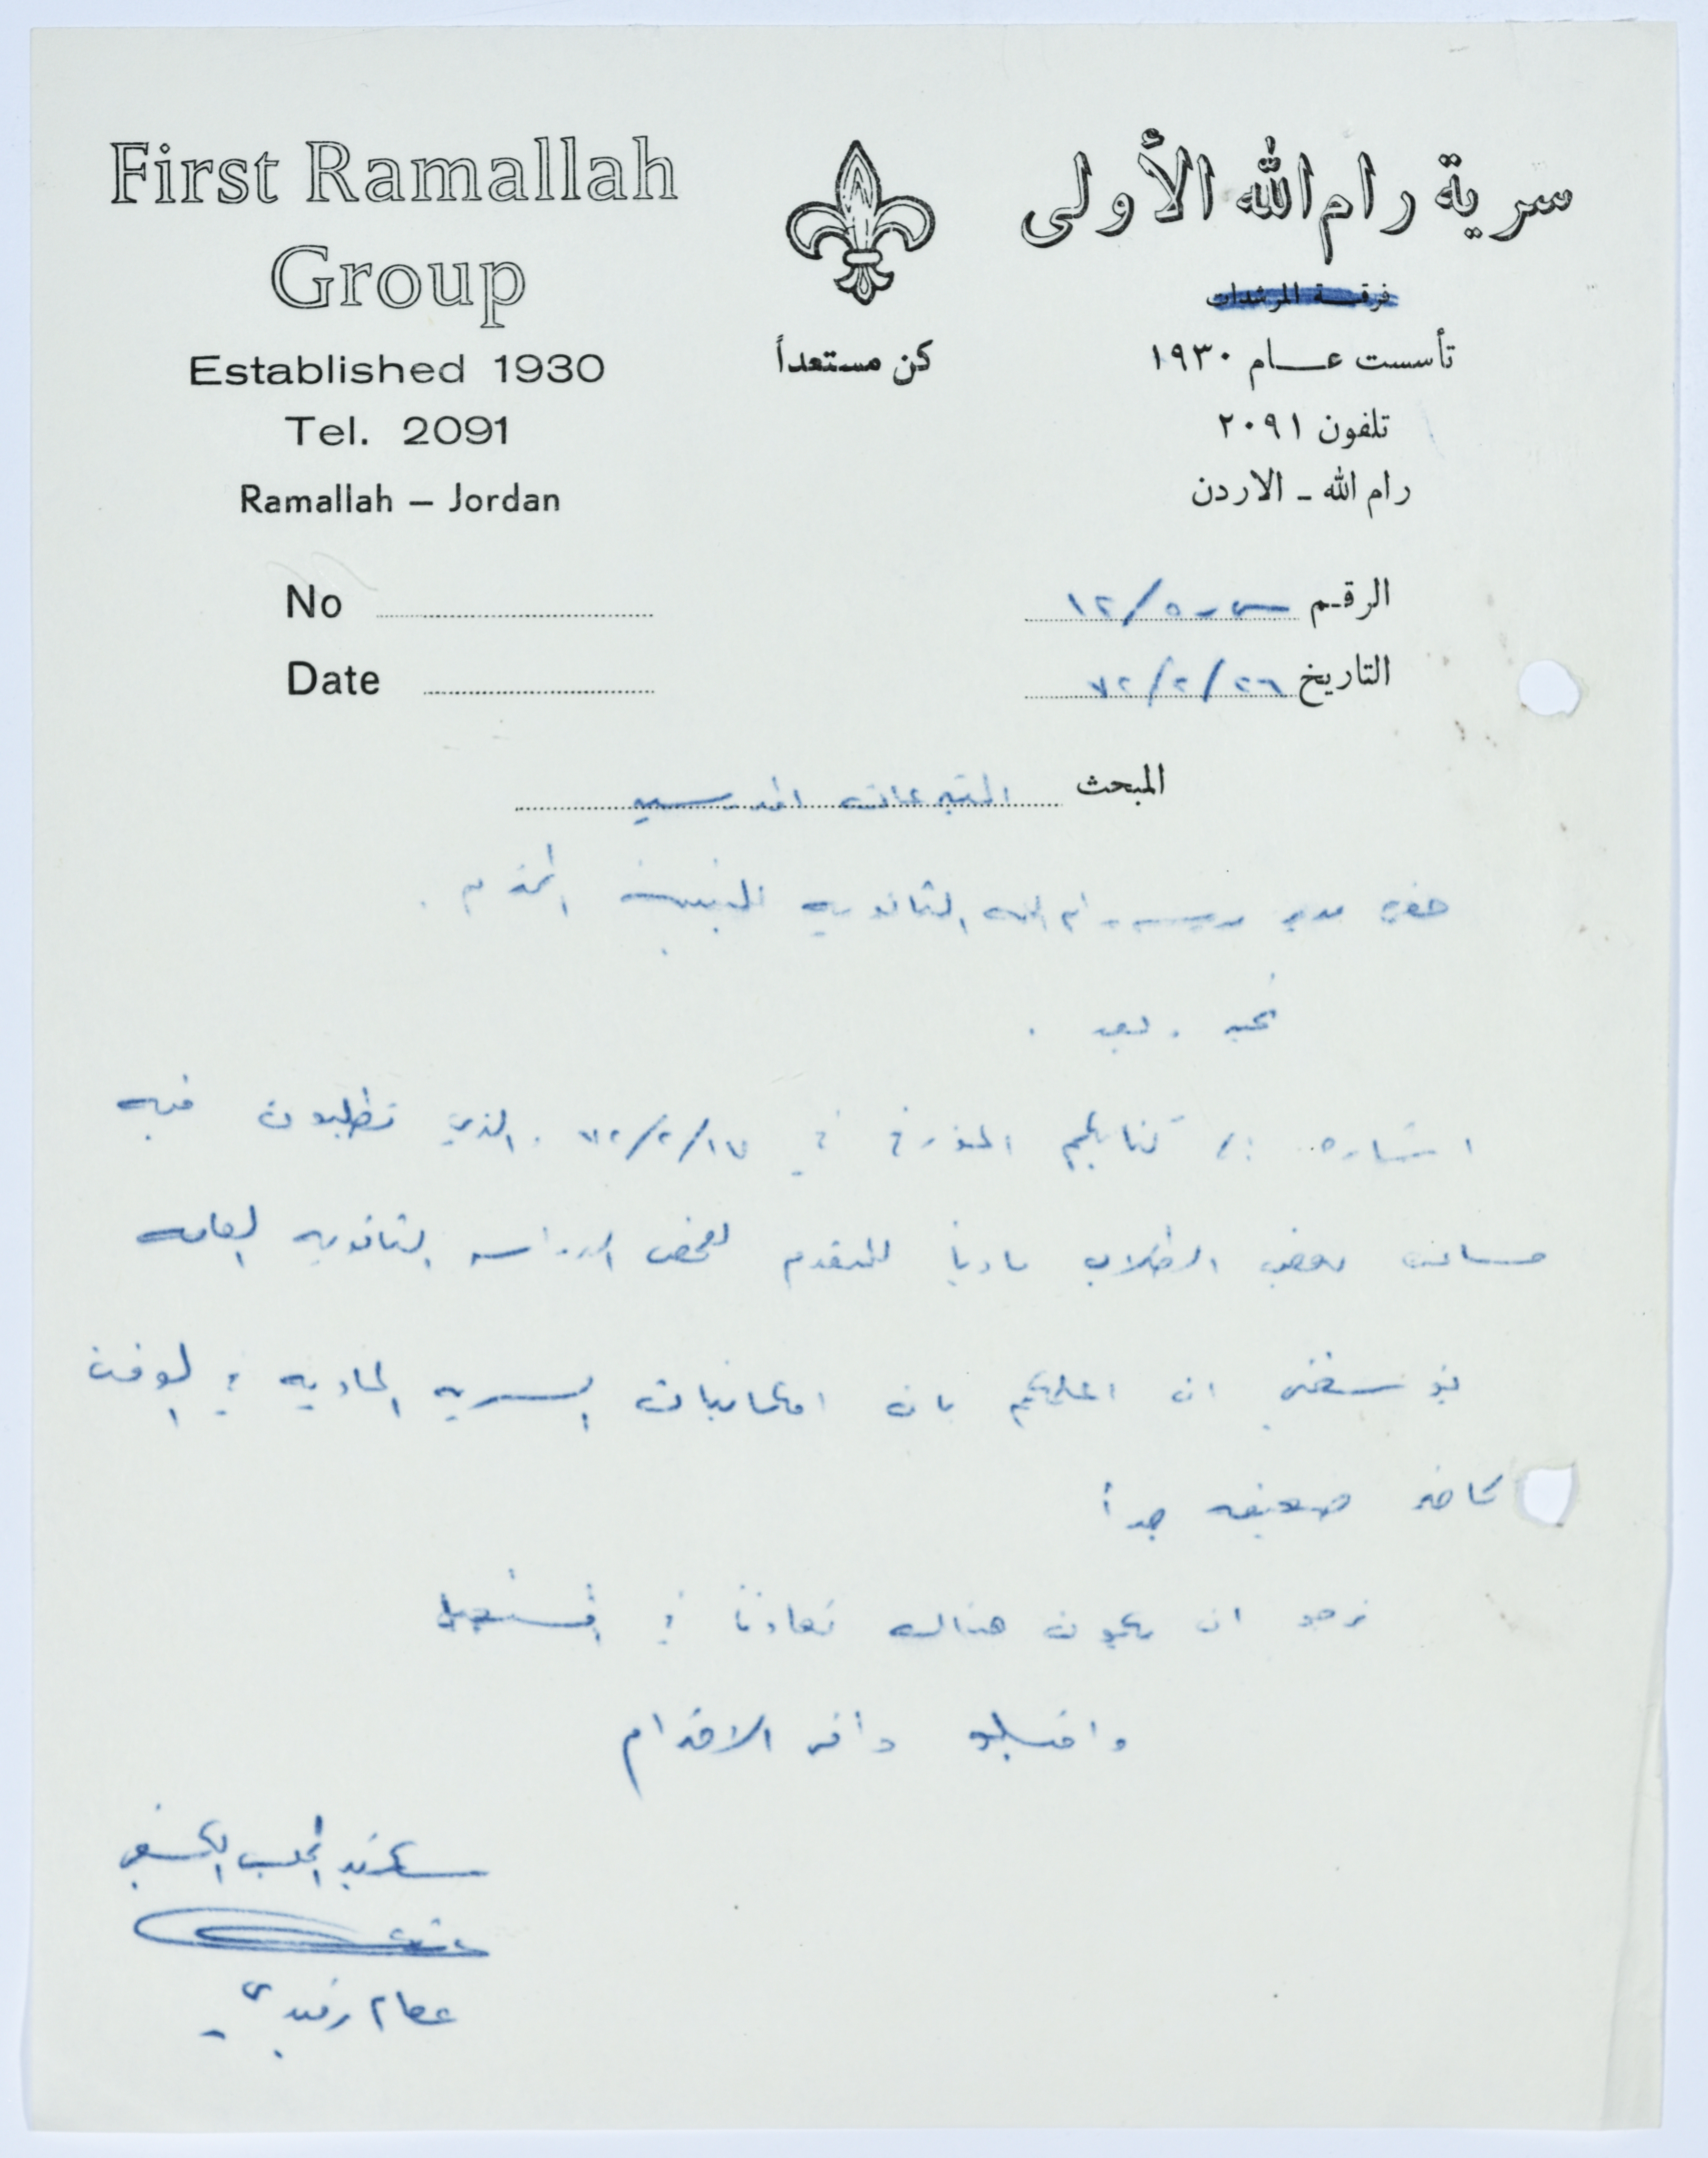 First Ramallah
Group
Established 1930
Tel. 2091
Ramallah – Jordan
كن مستعداً
سرية رام الله الأولى
فرقة المرشدات
تأسست عام ١٩٣٠
تلفون ٢٠٩١
رام الله - الاردن
No
Date
الرقم س-٥/١٢
التاريخ ٢٦/٢/٧٢
المبحث التبرعات المدرسيه
حضرة مدير مدرسة رام الله الثانويه للبنين المحترم .
تحيه وبعد .
اشاره الى كتابكم المؤرخ في ١٧/٢/٧٢ والذي تطلبون فيه
مساعدة بعض الطلاب ماديا للتقدم لفحص الدراسه الثانويه العامه
يؤسفني ان اعلمكم بان امكانيات السريه الماديه في الوقت
الحاضر ضعيفه جداً
نرجو ان يكون هناك تعاونا في المستقبل
واقبلو وافر الاحترام
سكرتير المجلس الكشفي
عصام رفيدي